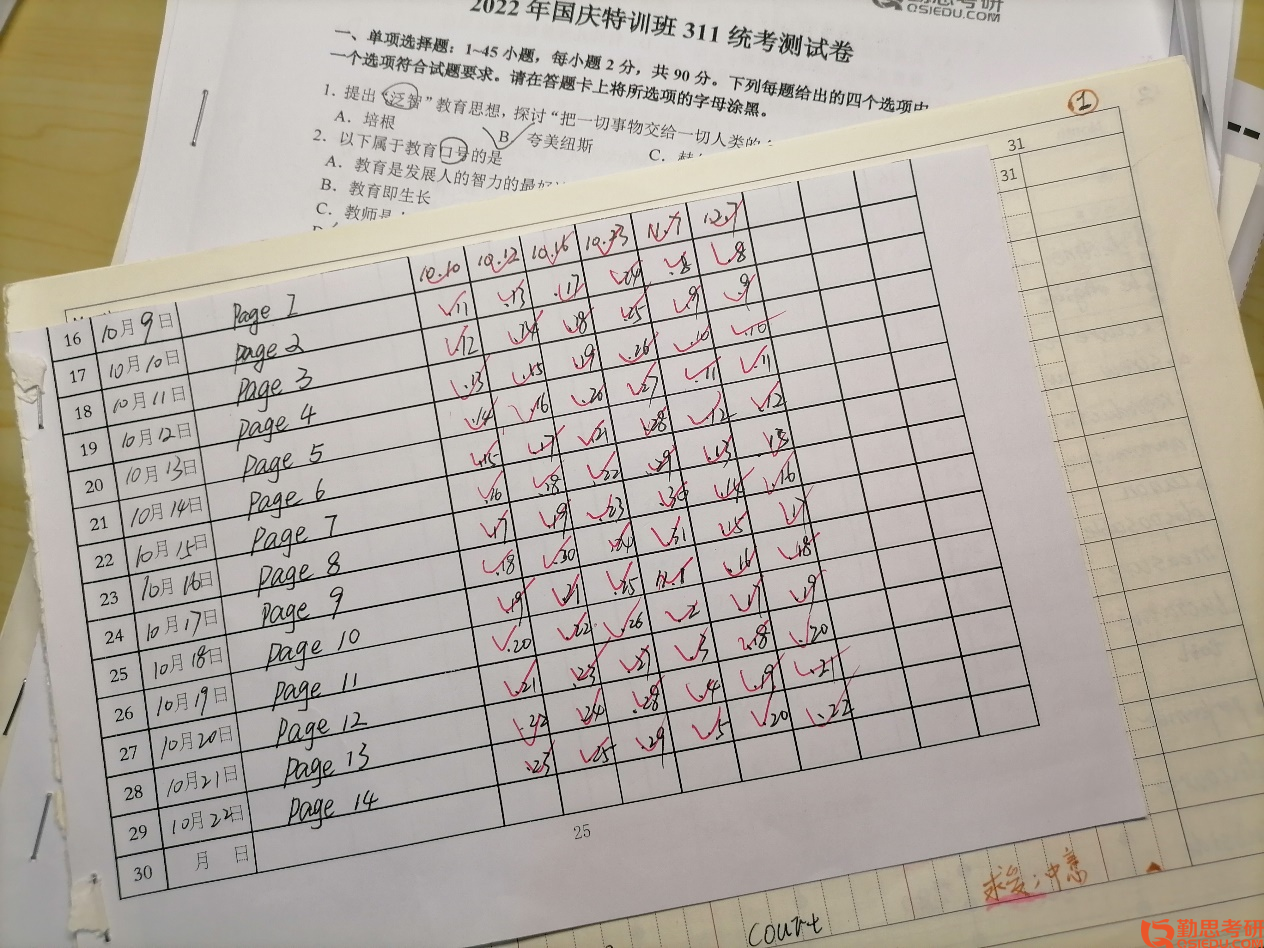 勤思考研
QSIEDU.COM
2022年国庆特训班311统考测试卷
一、单项选择题：1~45小题，每小题2分，共90分。下列每题给出的四个选项中，
一个选项符合试题要求。请在答题卡上将所选项的字母涂黑。
1. 提出“泛智”教育思想，探讨“把一切事物交给一切人类的
A. 培根 B 夸美纽斯 C.
2. 以下属于教育口号的是
A. 教育是发展人的智力的最好
B. 教育即生长
C. 教师是
①
31
31
10.10 10.12 10.16 10.23 11.7 12.7
16 10月9日 Page 1 .11 .13 .17 .24 .8 .8
17 10月10日 Page 2 .12 .14 .18 .25 .9 .9
18 10月11日 Page 3 .13 .15 .19 .26 .10 .10
19 10月12日 Page 4 .14 .16 .20 .27 .11 .11
20 10月13日 Page 5 .15 .17 .21 .28 .12 .12
21 10月14日 Page 6 .16 .18 .22 .29 .13
22 10月15日 Page 7 .17 .19 .23 .30 .14 .16
23 10月16日 Page 8 .18 .20 .24 .31 .15 .17
24 10月17日 Page 9 .19 .21 .25 .16 .18
25 10月18日 Page 10 .20 .22 .26 .2 .17 .19
26 10月19日 Page 11 .21 .23 .27 .3 .18 .20
27 10月20日 Page 12 .22 .24 .28 .4 .19 .21
28 10月21日 Page 13 .23 .25 .29 .5 .20 .22
29 10月22日 Page 14
30 月 日
25
count
勤思考研
QSIEDU.COM